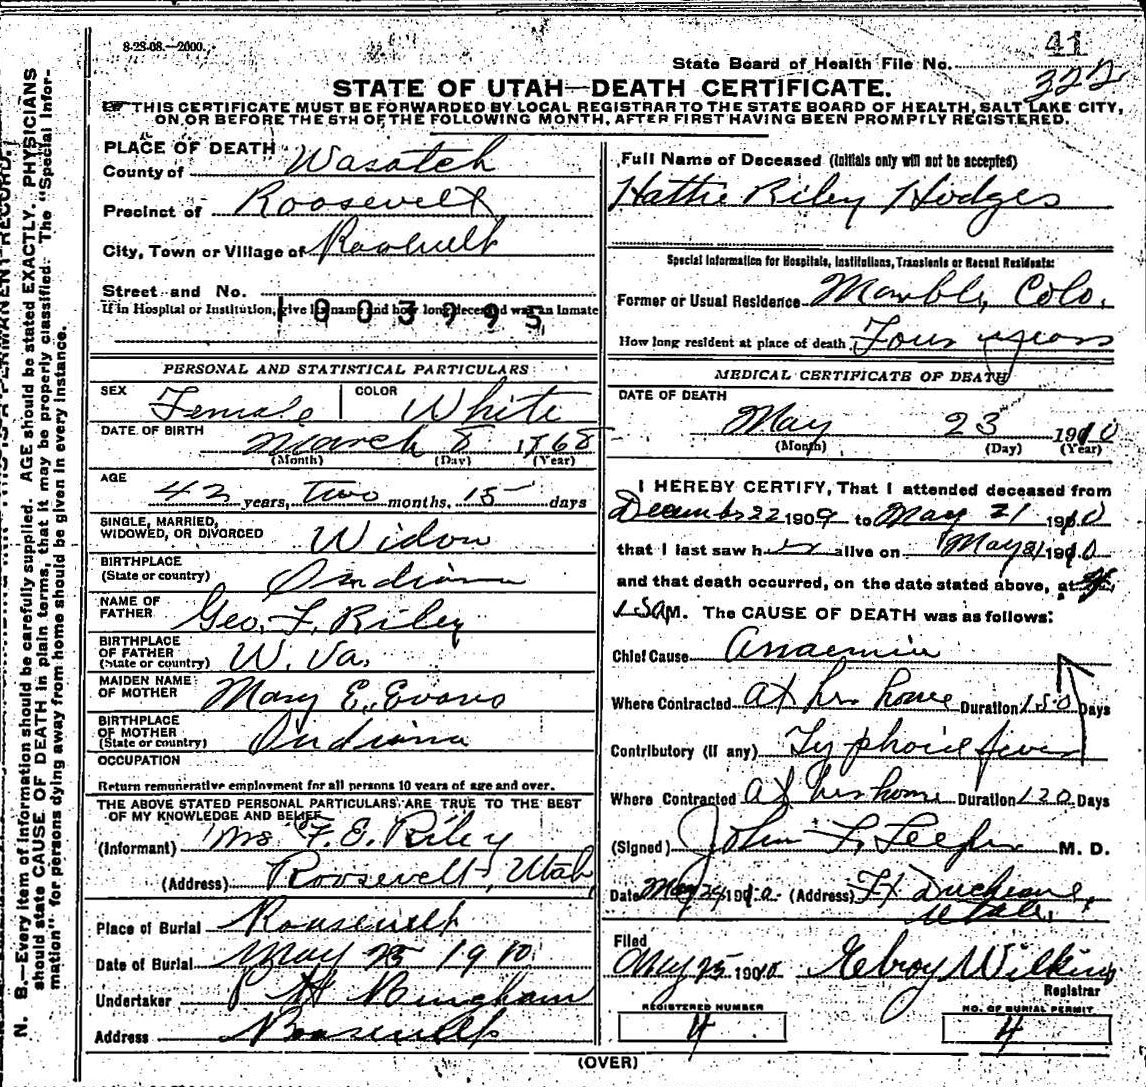 8-28-08.—2000.
41
State Board of Health File No.
322
STATE OF UTAH—DEATH CERTIFICATE.
THIS CERTIFICATE MUST BE FORWARDED BY LOCAL REGISTRAR TO THE STATE BOARD OF HEALTH, SALT LAKE CITY,
ON OR BEFORE THE 5TH OF THE FOLLOWING MONTH, AFTER FIRST HAVING BEEN PROMPTLY REGISTERED.
PLACE OF DEATH
County of Wasatch
Precinct of Roosevelt
City, Town or Village of Roosevelt
Street and No.
If in Hospital or Institution, give its name and how long deceased was an inmate
1003795
PERSONAL AND STATISTICAL PARTICULARS
SEX Female COLOR White
DATE OF BIRTH March 8 1868
(Month) (Day) (Year)
AGE
42 years, two months, 15 days
SINGLE, MARRIED,
WIDOWED, OR DIVORCED Widow
BIRTHPLACE
(State or country) Indiana
NAME OF
FATHER Geo. F. Riley
BIRTHPLACE
OF FATHER
(State or country) W. Va.
MAIDEN NAME
OF MOTHER Mary E. Evans
BIRTHPLACE
OF MOTHER
(State or country) Indiana
OCCUPATION
Return remunerative employment for all persons 10 years of age and over.
THE ABOVE STATED PERSONAL PARTICULARS ARE TRUE TO THE BEST
OF MY KNOWLEDGE AND BELIEF
(Informant) Mrs F. E. Riley
(Address) Roosevelt, Utah
Place of Burial Roosevelt
Date of Burial May 25 1910
Undertaker P H Bingham
Address Roosevelt
Full Name of Deceased (Initials only will not be accepted)
Hattie Riley Hodges
Special Information for Hospitals, Institutions, Transients or Recent Residents:
Former or Usual Residence Marble, Colo.
How long resident at place of death. Four years
MEDICAL CERTIFICATE OF DEATH
DATE OF DEATH
May 23 1910
(Month) (Day) (Year)
I HEREBY CERTIFY, That I attended deceased from
December 22 1909 to May 21 1910
that I last saw her alive on May 21 1910
and that death occurred, on the date stated above, at
M. The CAUSE OF DEATH was as follows:
Chief Cause Anaemia
Where Contracted at her home Duration 150 Days
Contributory (if any) Typhoid fever
Where Contracted at her home Duration 120 Days
(Signed) John F. M. D.
Date May 24 1910 (Address) Ft Duchesne,
Utah.
Filed
May 25 1910 Wilkins
Registrar
REGISTERED NUMBER
4
NO. OF BURIAL PERMIT
4
(OVER)
N. B.—Every item of information should be carefully supplied. AGE should be stated EXACTLY. PHYSICIANS
should state CAUSE OF DEATH in plain terms, that it may be properly classified. The "Special Infor-
mation" for persons dying away from home should be given in every instance.